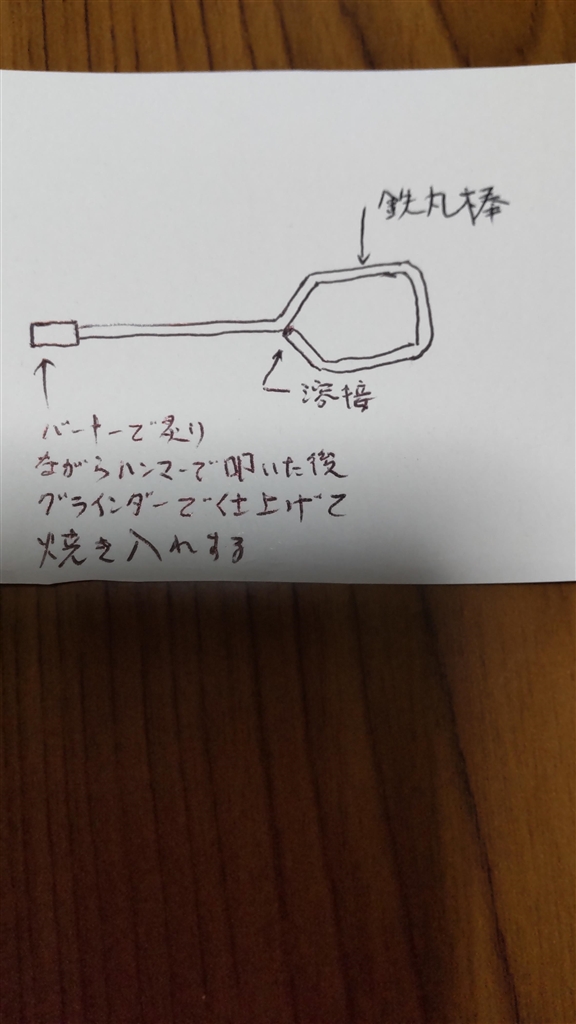 鉄丸棒
溶接
バーナーで炙り
ながらハンマーで叩いた後
グラインダーで仕上げて
焼き入れする